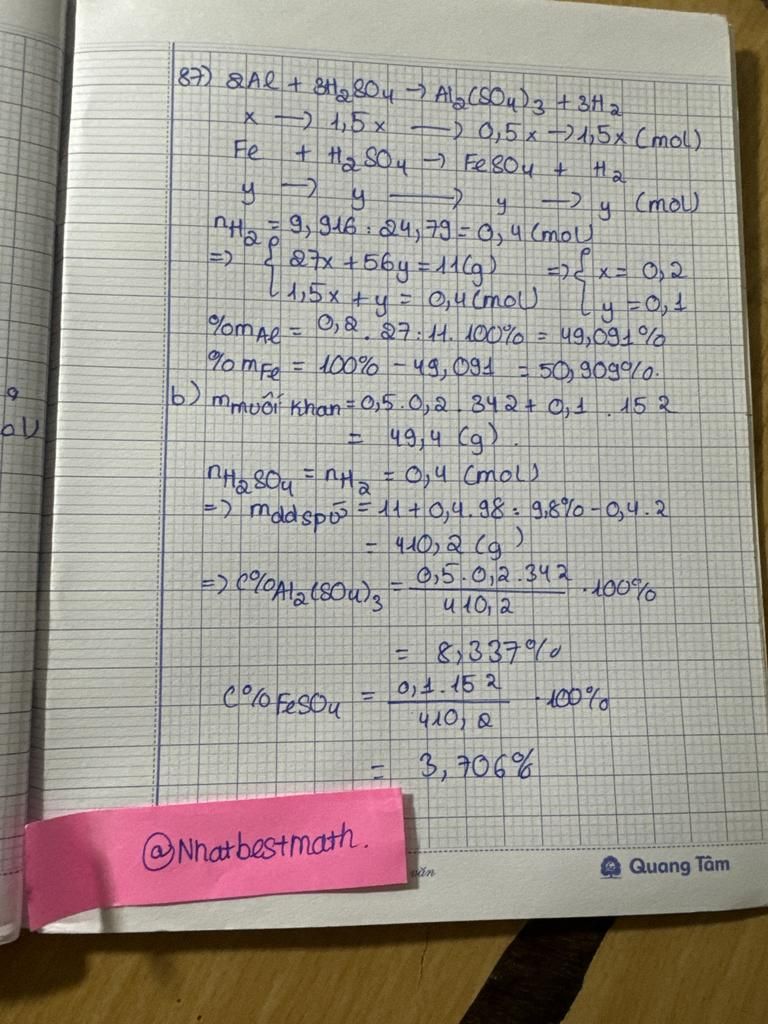 87) 2Al + 3H₂SO₄ → Al₂(SO₄)₃ + 3H₂
x → 1,5x → 0,5x → 1,5x (mol)
Fe + H₂SO₄ → FeSO₄ + H₂
y → y → y → y (mol)
nH₂ = 9,916 : 24,79 = 0,4 (mol)
=> { 27x + 56y = 11 (g) => { x = 0,2
1,5x + y = 0,4 (mol) y = 0,1
%mAl = 0,2 . 27 : 11 . 100% = 49,091%
%mFe = 100% - 49,091 = 50,909%.
b) mmuối khan = 0,5 . 0,2 . 342 + 0,1 . 152
= 49,4 (g).
nH₂SO₄ = nH₂ = 0,4 (mol)
=> mddspứ = 11 + 0,4 . 98 : 9,8% - 0,4 . 2
= 410,2 (g)
=> C%Al₂(SO₄)₃ = 0,5 . 0,2 . 342 / 410,2 . 100%
= 8,337%
C%FeSO₄ = 0,1 . 152 / 410,2 . 100%
= 3,706%
@Nhatbestmath.
văn
Quang Tâm